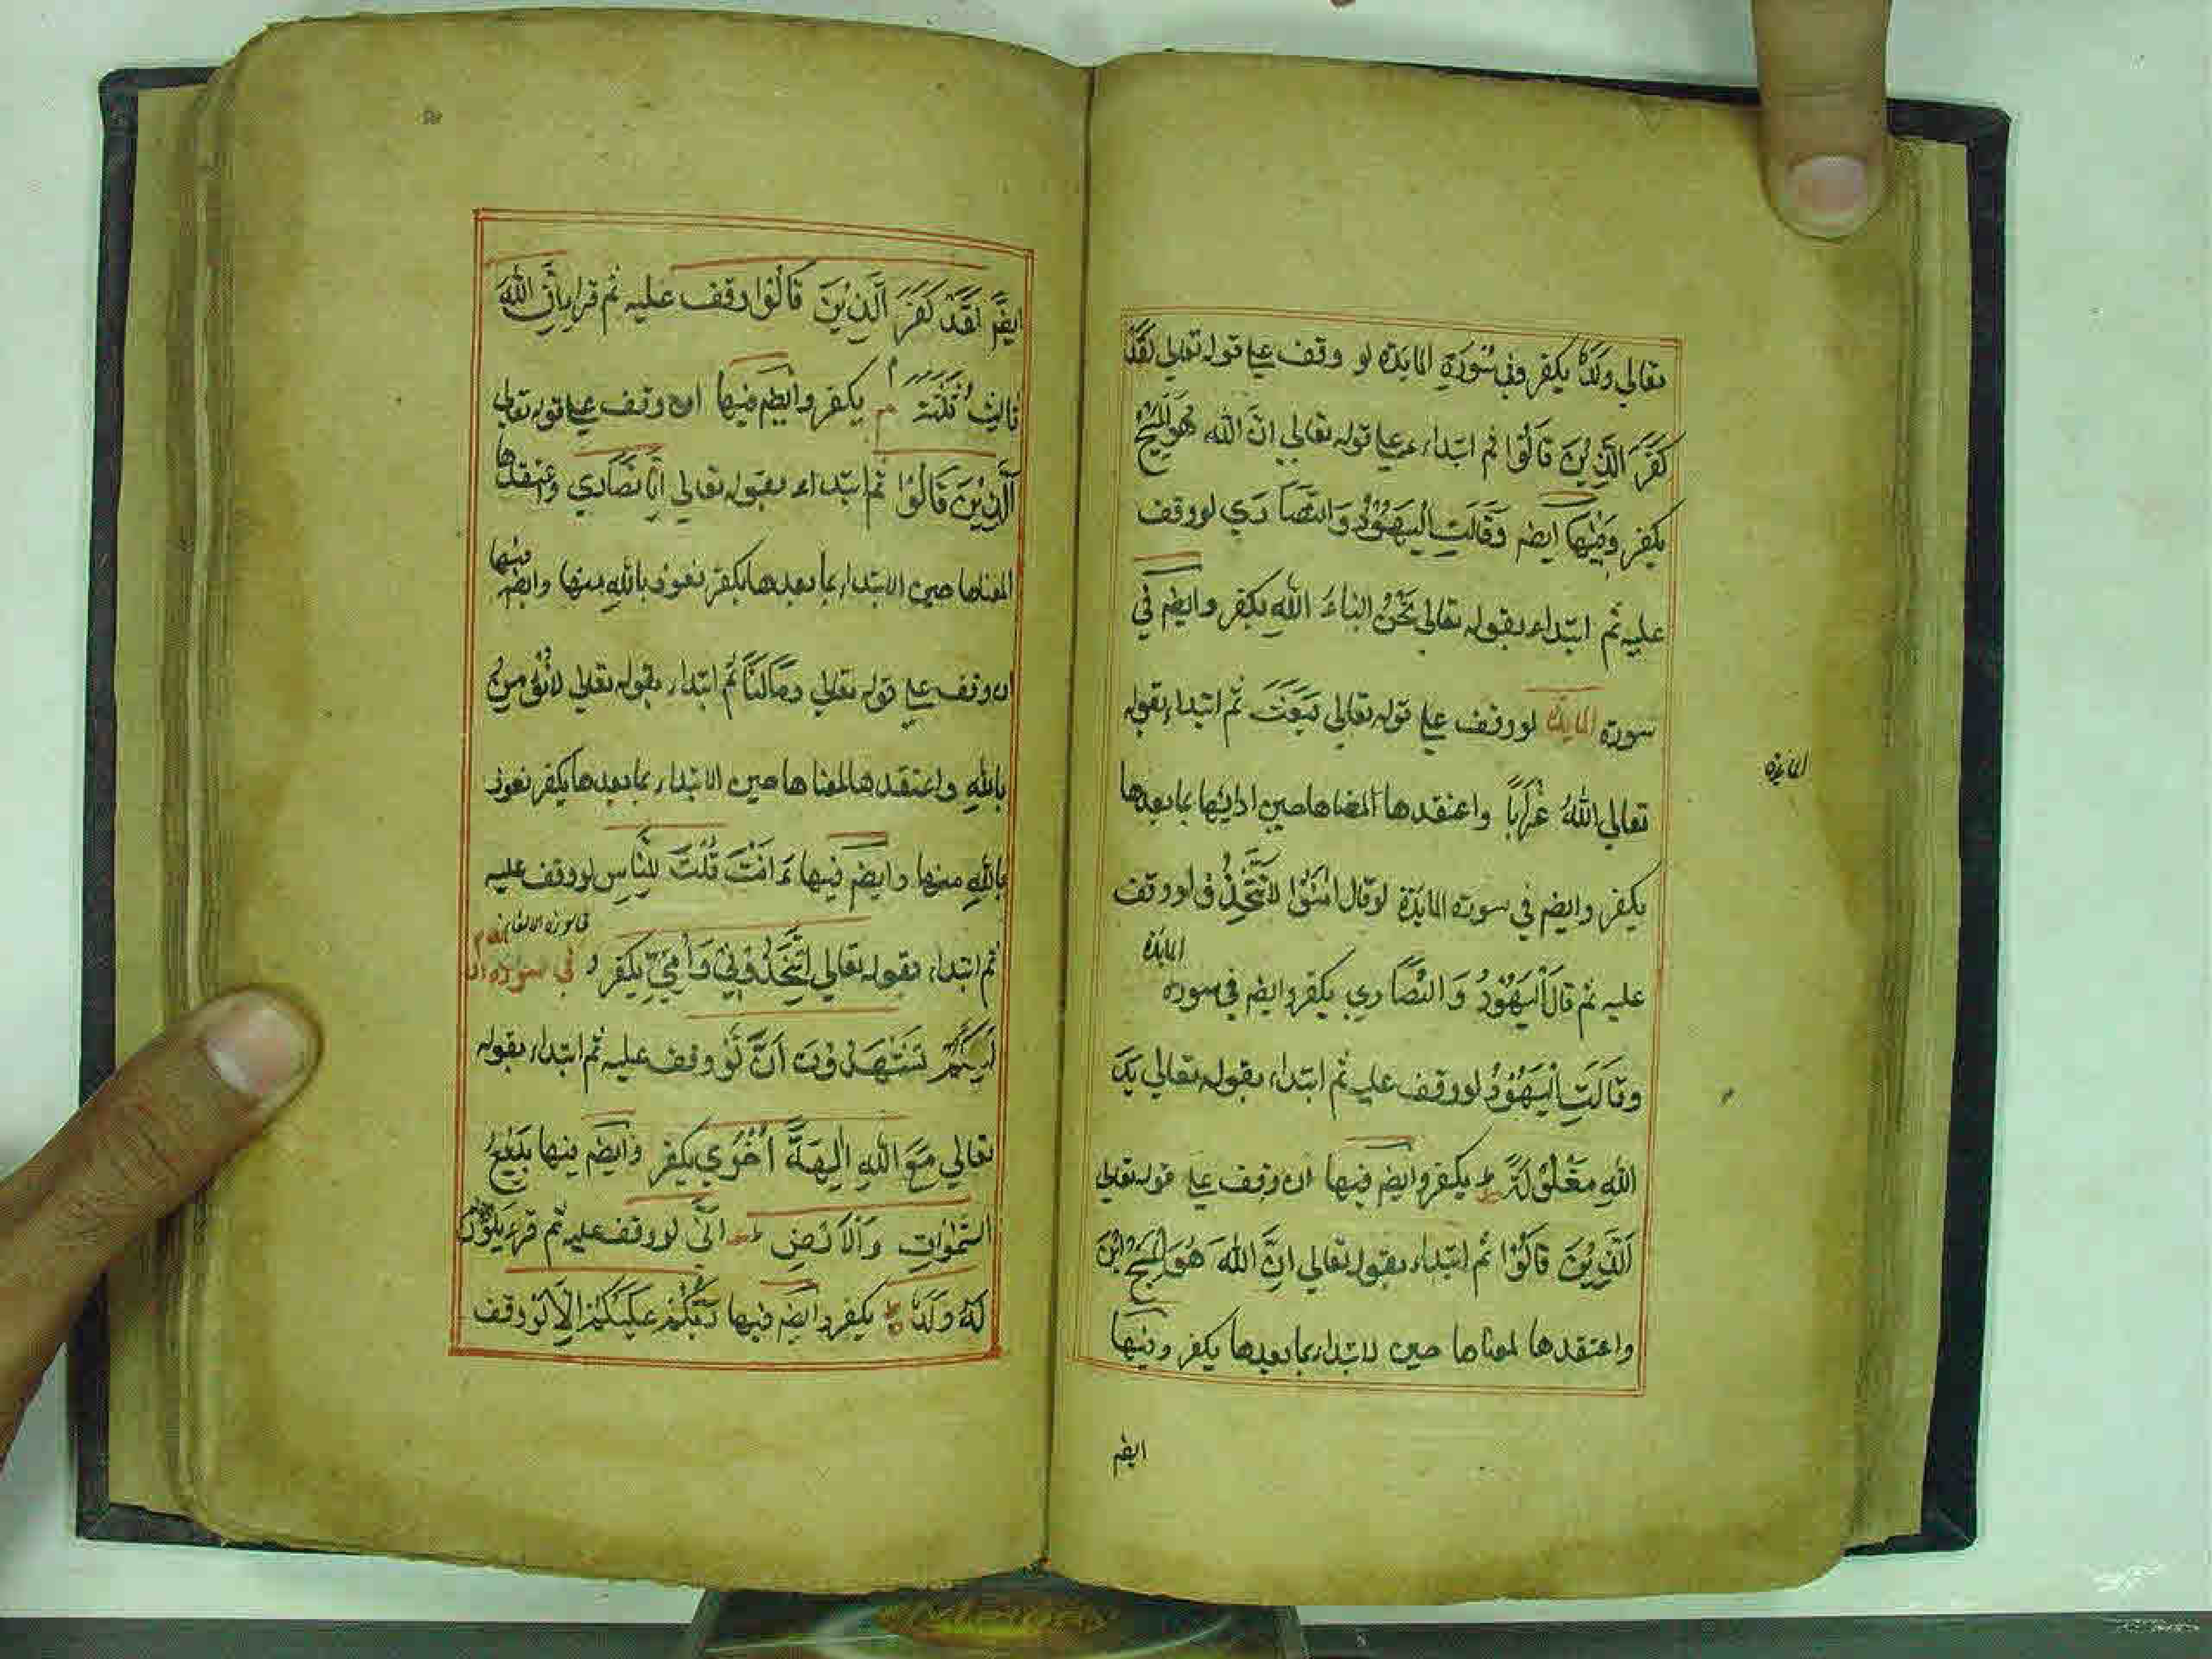 تعالي ولدًا يكفر وفي سُورَةِ المايدة لو وقف علي قوله تعالي لَقَدْ
كَفَرَ الَّذِيْنَ قَالُوْا ثم ابتداء علي قوله تعالي انّ الله هُوَالْمَسِيْحُ
يكفر وَفِيْهَا ايضم وَقَالَتِ الْيَهُوْدُ وَالنَّصَارَي لو وقف
عليه ثم ابتداء بقوله تعالي نَحْنُ ابْنَاءُ اللهِ يكفر وايضم في
سورة المايدة لو وقف علي قوله تعالي فَبَعَثَ ثم ابتداء بقوله
المايدة
تعالي اللهُ غُرَابًا واعتقدها المعناها حين ادايها بما بعدها
يكفر وايضم في سورة المايدة لو قال امَنُوْا لَاتَتَّخِذُوْا لو وقف
عليه ثم قال الْيَهُوْدُ وَالنَّصَارَي يكفر وايضم في سورة المايدة
وقَالَتِ الْيَهُوْدُ لو وقف عليه ثم ابتداء بقوله تعالي يَدُ
اللهِ مَغْلُوْلَةٌ ط يكفر وايضم فيها ان وقف علي قوله تعالي
اَلَّذِيْنَ قَالُوْا ثم ابتداء بقوله تعالي اِنَّ اللهَ هُوَالْمَسِيْحُ ابْنُ
واعتقدها لمعناها حين لابتداء بما بعدها يكفر وفيها
ايضم
ايضم لَقَدْ كَفَرَ الَّذِيْنَ قَالُوْا وقف عليه ثم قرا اِنَّ اللهَ
ثَالِثُ ثَلٰثَةٍ م يكفر وايضم فيها ان وقف علي قوله تعالي
اَلَّذِيْنَ قَالُوْا ثم ابتداء بقوله تعالي اِنَّا نَصَارَي واعتقدها
المعناها حين الابتداء بما بعدها يكفر نعوذ بالله منها وايضم فيها
ان وقف علي قوله تعالي وَمَالَنَا ثم ابتداء بقوله تعالي لَانُؤْمِنُ
بِاللهِ واعتقدها المعناها حين الابتداء بما بعدها يكفر نعوذ
باللهِ منها وايضم فيها ءَاَنْتَ قُلْتَ لِلنَّاسِ لو وقف عليه
ثم ابتداء بقوله تعالي اتَّخِذُوْنِيْ وَاُمِّيَ يكفر و في سورة
اَئِنَّكُمْ لَتَشْهَدُوْنَ اَنَّ لَوْ وقف عليه ثم ابتداء بقوله
تعالي مَعَ اللهِ اٰلِهَةً اُخْرَي يكفر وايضم فيها بَدِيْعُ
السَّمٰوَاتِ وَالْاَرْضِ ط اَنّٰي لو وقف عليه ثم قرء يَكُوْنُ
لَهُ وَلَدٌ ط يكفر وايضم فيها عَلَيْكُمْ اِلَّا لو وقف